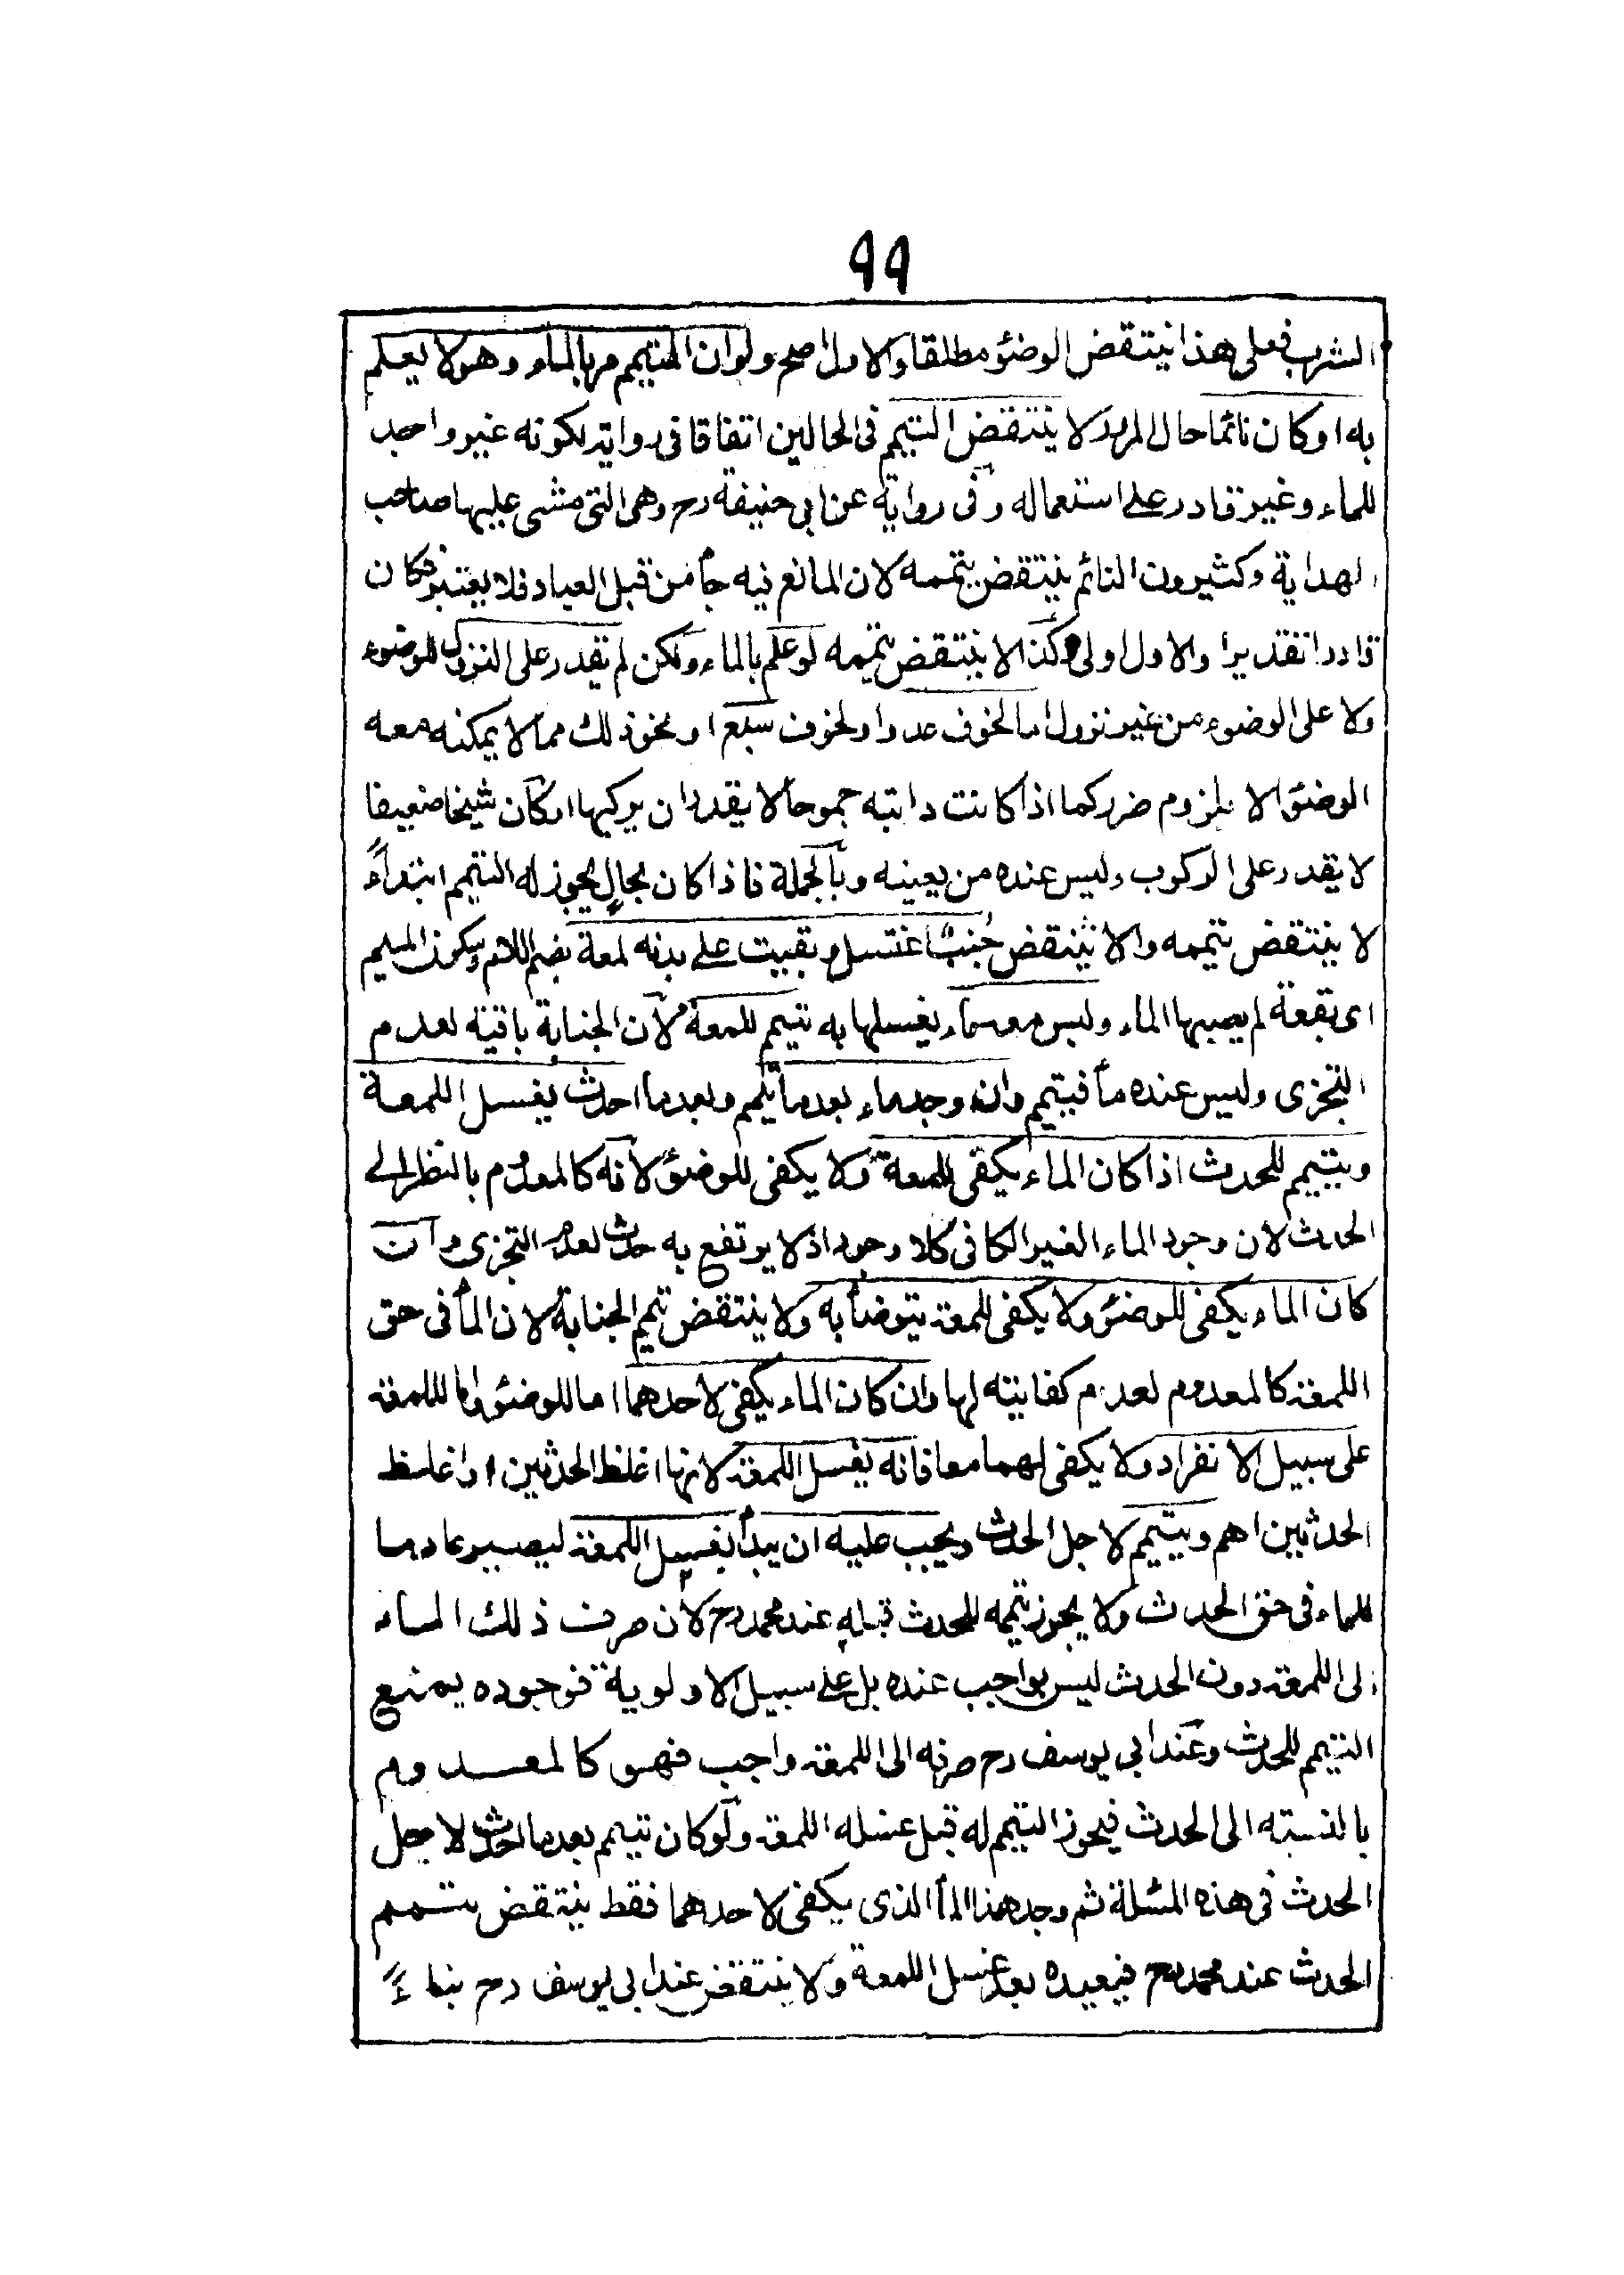 ۹۹
الشرب فعلى هذا ينتقض الوضوء مطلقا والاول اصح ولو ان المتيمم مر بالماء وهو لا يعلم
به او كان نائما حال المرور لا ينتقض التيمم فى الحالين اتفاقا فى رواية لكونه غير واجد
للماء وغير قادر على استعماله وفى رواية عن ابى حنيفة رح وهى التى مشى عليها صاحب
الهداية وكثيرون النائم ينتقض تيممه لان المانع فيه جاء من قبل العباد فلا يعتبر فكان
قادرا تقديرا والاول اولى وكذا لا ينتقض تيممه لو علم بالماء ولكن لم يقدر على النزول للوضوء
ولا على الوضوء من غير نزول اما لخوف عدو او لخوف سبع او نحو ذلك مما لا يمكنه معه
الوضوء الا بلزوم ضرر كما اذا كانت دابته جموحا لا يقدر ان يركبها او كان شيخا ضعيفا
لا يقدر على الركوب وليس عنده من يعينه وبالجملة فاذا كان بحال يجوز له التيمم ابتداءً
لا ينتقض تيممه والا ينتقض جنب اغتسل و بقيت على بدنه لمعة بضم اللام وسكون الميم
اى بقعة لم يصبها الماء وليس معه ماء يغسلها به تيمم للمعة لان الجنابة باقية لعدم
التجزى وليس عنده ماء فيتيمم وان وجد ماء بعد ما تيمم وبعد ما احدث يغسل اللمعة
ويتيمم للحدث اذا كان الماء يكفى للمعة ولا يكفى للوضوء لانه كالمعدوم بالنظر الى
الحدث لان وجود الماء الغير الكافى كلا وجود اذ لا يرتفع به حدث لعدم التجزى وان
كان الماء يكفى للوضوء ولا يكفى للمعة يتوضأ به ولا ينتقض تيمم الجنابة لان الماء فى حق
اللمعة كالمعدوم لعدم كفايته لها وان كان الماء يكفى لاحدهما اما للوضوء واما لللمعة
على سبيل الانفراد ولا يكفى لهما معا فانه يغسل اللمعة لانها اغلظ الحدثين و اغلظ
الحدثين اهم ويتيمم لاجل الحدث ويجب عليه ان يبدأ بغسل اللمعة ليصير عادما
للماء فى حق الحدث ولا يجوز تيممه للحدث قبله عند محمد رح لان صرف ذلك الماء
الى اللمعة دون الحدث ليس بواجب عنده بل على سبيل الاولوية فوجوده يمنع
التيمم للحدث وعند ابى يوسف رح صرفه الى اللمعة واجب فهو كالمعدوم
بالنسبة الى الحدث فيجوز التيمم له قبل غسله اللمعة ولو كان تيمم بعد ما احدث لاجل
الحدث فى هذه المسئلة ثم وجد هذا الماء الذى يكفى لاحدهما فقط ينتقض تيمم
الحدث عند محمد رح فيعيده بعد غسل اللمعة ولا ينتقض عند ابى يوسف رح بناءً